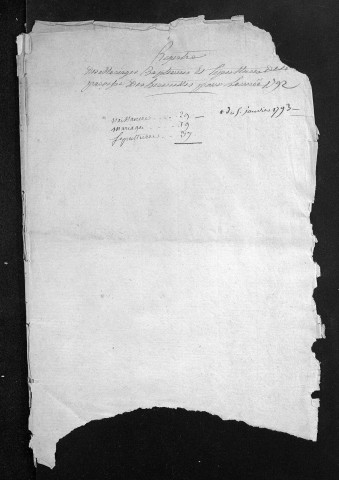 Repertoire
des Mariages Baptêmes et Sepultures de la
paroisse des pour L'année 1792
+ du 5. janvier 1793
naissances .... 29
mariage .... 19
sepultures .. 27